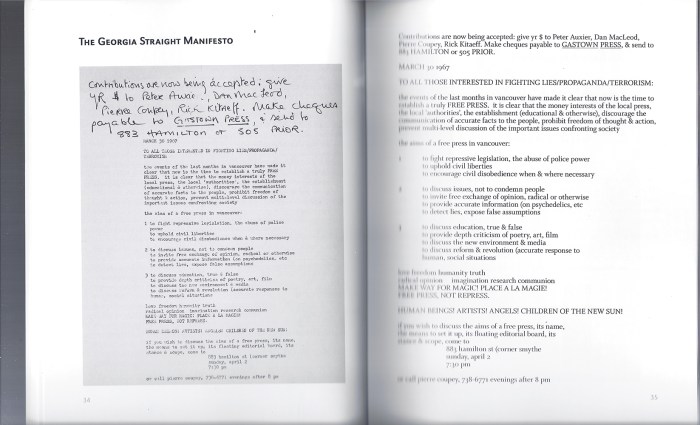 THE GEORGIA STRAIGHT MANIFESTO
Contributions are now being accepted: give
yR $ to Peter Auxier, Dan MacLeod,
Pierre Coupey, Rick Kitaeff. Make cheques
payable to GASTOWN PRESS, & send to
883 HAMILTON or 505 PRIOR.
MARCH 30 1967
TO ALL THOSE INTERESTED IN FIGHTING LIES/PROPAGANDA/
TERRORISM:
the events of the last months in vancouver have made it
clear that now is the time to establish a truly FREE
PRESS. it is clear that the money interests of the
local press, the local 'authorities', the establishment
(educational & otherwise), discourage the communication
of accurate facts to the people, prohibit freedom of
thought & action, prevent multi-level discussion of the
important issues confronting society
the aims of a free press in vancouver:
1 to fight repressive legislation, the abuse of police
power
to uphold civil liberties
to encourage civil disobedience when & where necessary
2 to discuss issues, not to condemn people
to invite free exchange of opinion, radical or otherwise
to provide accurate information (on psychedelics, etc
to detect lies, expose false assumptions
3 to discuss education, true & false
to provide depth criticism of poetry, art, film
to discuss the new environment & media
to discuss reform & revolution (accurate response to
human, social situations
love freedom humanity truth
radical opinion imagination research communion
MAKE WAY FOR MAGIC! PLACE A LA MAGIE!
FREE PRESS, NOT REPRESS.
HUMAN BEINGS! ARTISTS! ANGELS! CHILDREN OF THE NEW SUN!
if you wish to discuss the aims of a free press, its name,
the means to set it up, its floating editorial board, its
stance & scope, come to
883 hamilton st (corner smythe
sunday, april 2
7:30 pm
or call pierre coupey, 738-6771 evenings after 8 pm
34
Contributions are now being accepted: give yr $ to Peter Auxier, Dan MacLeod,
Pierre Coupey, Rick Kitaeff. Make cheques payable to GASTOWN PRESS, & send to
883 HAMILTON or 505 PRIOR.
MARCH 30 1967
TO ALL THOSE INTERESTED IN FIGHTING LIES/PROPAGANDA/TERRORISM:
the events of the last months in vancouver have made it clear that now is the time to
establish a truly FREE PRESS. it is clear that the money interests of the local press,
the local 'authorities', the establishment (educational & otherwise), discourage the
communication of accurate facts to the people, prohibit freedom of thought & action,
prevent multi-level discussion of the important issues confronting society
the aims of a free press in vancouver:
1 to fight repressive legislation, the abuse of police power
to uphold civil liberties
to encourage civil disobedience when & where necessary
2 to discuss issues, not to condemn people
to invite free exchange of opinion, radical or otherwise
to provide accurate information (on psychedelics, etc
to detect lies, expose false assumptions
3 to discuss education, true & false
to provide depth criticism of poetry, art, film
to discuss the new environment & media
to discuss reform & revolution (accurate response to
human, social situations
love freedom humanity truth
radical opinion imagination research communion
MAKE WAY FOR MAGIC! PLACE A LA MAGIE!
FREE PRESS, NOT REPRESS.
HUMAN BEINGS! ARTISTS! ANGELS! CHILDREN OF THE NEW SUN!
if you wish to discuss the aims of a free press, its name,
the means to set it up, its floating editorial board, its
stance & scope, come to
883 hamilton st (corner smythe
sunday, april 2
7:30 pm
or call pierre coupey, 738-6771 evenings after 8 pm
35